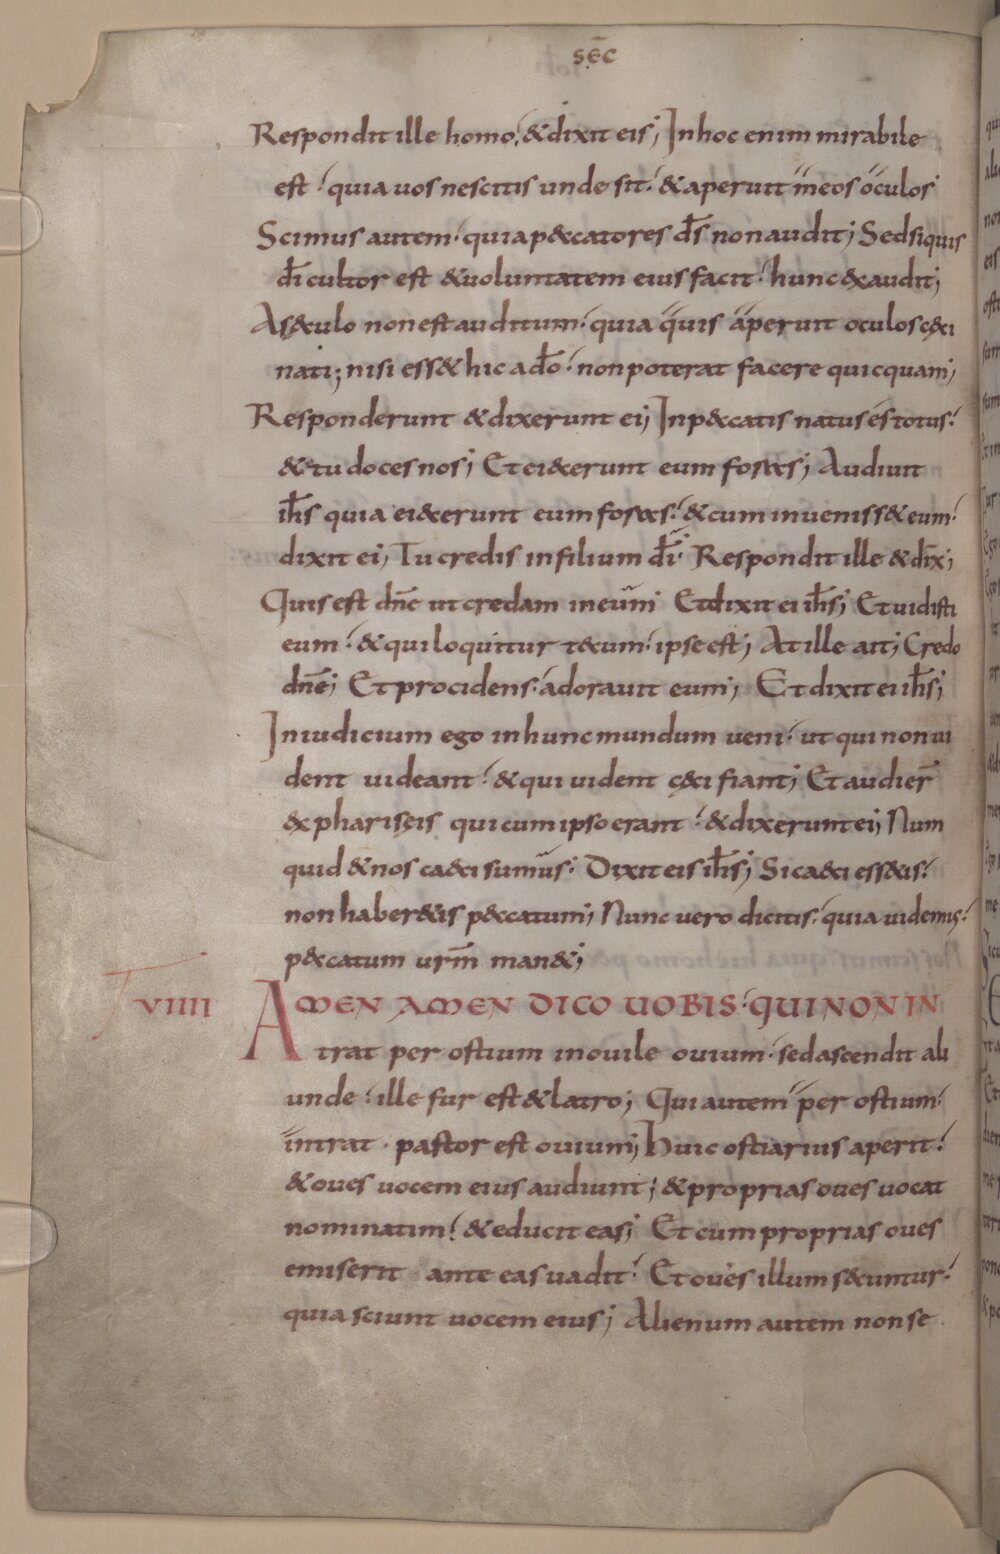 SEC̄
Respondit ille homo; & dixit eis; In hoc enim mirabile
est; quia uos nescitis unde sit; & aperuit meos oculos
Scimus autem· quia p&catores d̄s non audit; Sed siquis
d̄i cultor est & uoluntatem eius facit; hunc exaudit;
A s&culo non est auditum; quia quis aperuit oculos c&ci
nati; nisi ess& hic a d̄o; non poterat facere quicquam;
Responderunt & dixerunt ei; In p&catis natus es totus;
& tu doces nos; Et ei&cerunt eum foras; Audiuit
ih̄s quia ei&cerunt eum foras; & cum inueniss& eum;
dixit ei; Tu credis in filium d̄i· Respondit ille & dix̄;
Quis est dn̄e ut credam in eum; Et dixit ei ih̄s; Et uidisti
eum; & qui loquitur t&cum; ipse est; At ille ait; Credo
dn̄e; Et procidens· adorauit eum; Et dixit ei ih̄s;
In iudicium ego in hunc mundum ueni; ut qui non ui
dent uideant; & qui uident c&ci fiant; Et audier̄
ex phariseis qui cum ipso erant; & dixerunt ei; Num
quid & nos caeci sumus· Dixit eis ih̄s; Si caeci ess&is;
non haber&is p&catum; Nunc uero dicitis; quia uidemus;
p&catum urm̄ man&;
VIIII AMEN AMEN DICO UOBIS; QUI NON IN
trat per ostium in ouile ouium· sed ascendit ali
unde; ille fur est & latro; Qui autem per ostium
intrat· pastor est ouium; Huic ostiarius aperit;
& oues uocem eius audiunt; & proprias oues uocat
nominatim; & educit eas; Et cum proprias oues
emiserit ante eas uadit; Et oues illum s&cuntur;
quia sciunt uocem eius; Alienum autem non se